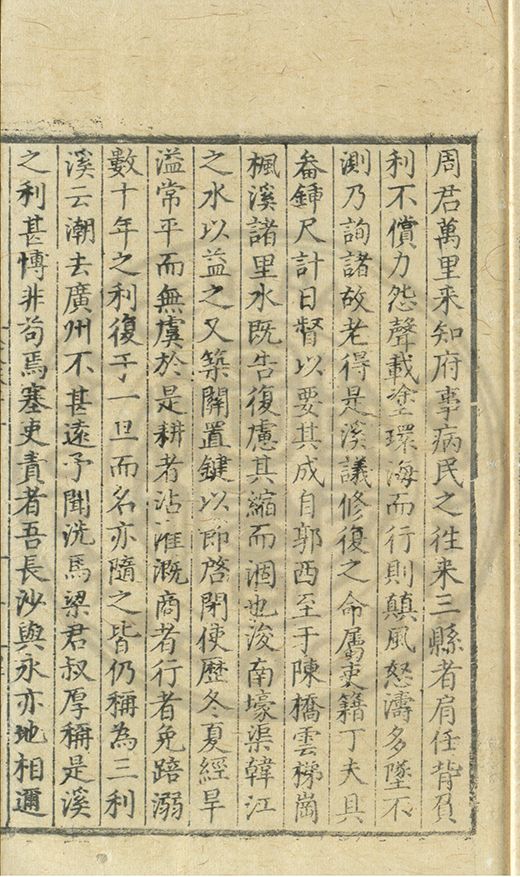 周君萬里来知府事病民之往来三縣者肩任背負
利不償力怨聲載塗環海而行則顛風怒濤多墜不
測乃詢諸故老得是溪議修復之命属吏籍丁夫具
畚鍤尺計日督以要其成自郭西至于陳橋雲梯崗
楓溪諸里水既告復慮其縮而涸也浚南壕渠韓江
之水以益之又築關置鍵以節啓閉使歷冬夏經旱
溢常平而無虞於是耕者沾灌溉商者行者免踣溺
數十年之利復于一旦而名亦隨之皆仍稱為三利
溪云潮去廣州不甚遠予聞洗馬梁君叔厚稱是溪
之利甚博非茍焉塞吏責者吾長沙與永亦地相邇